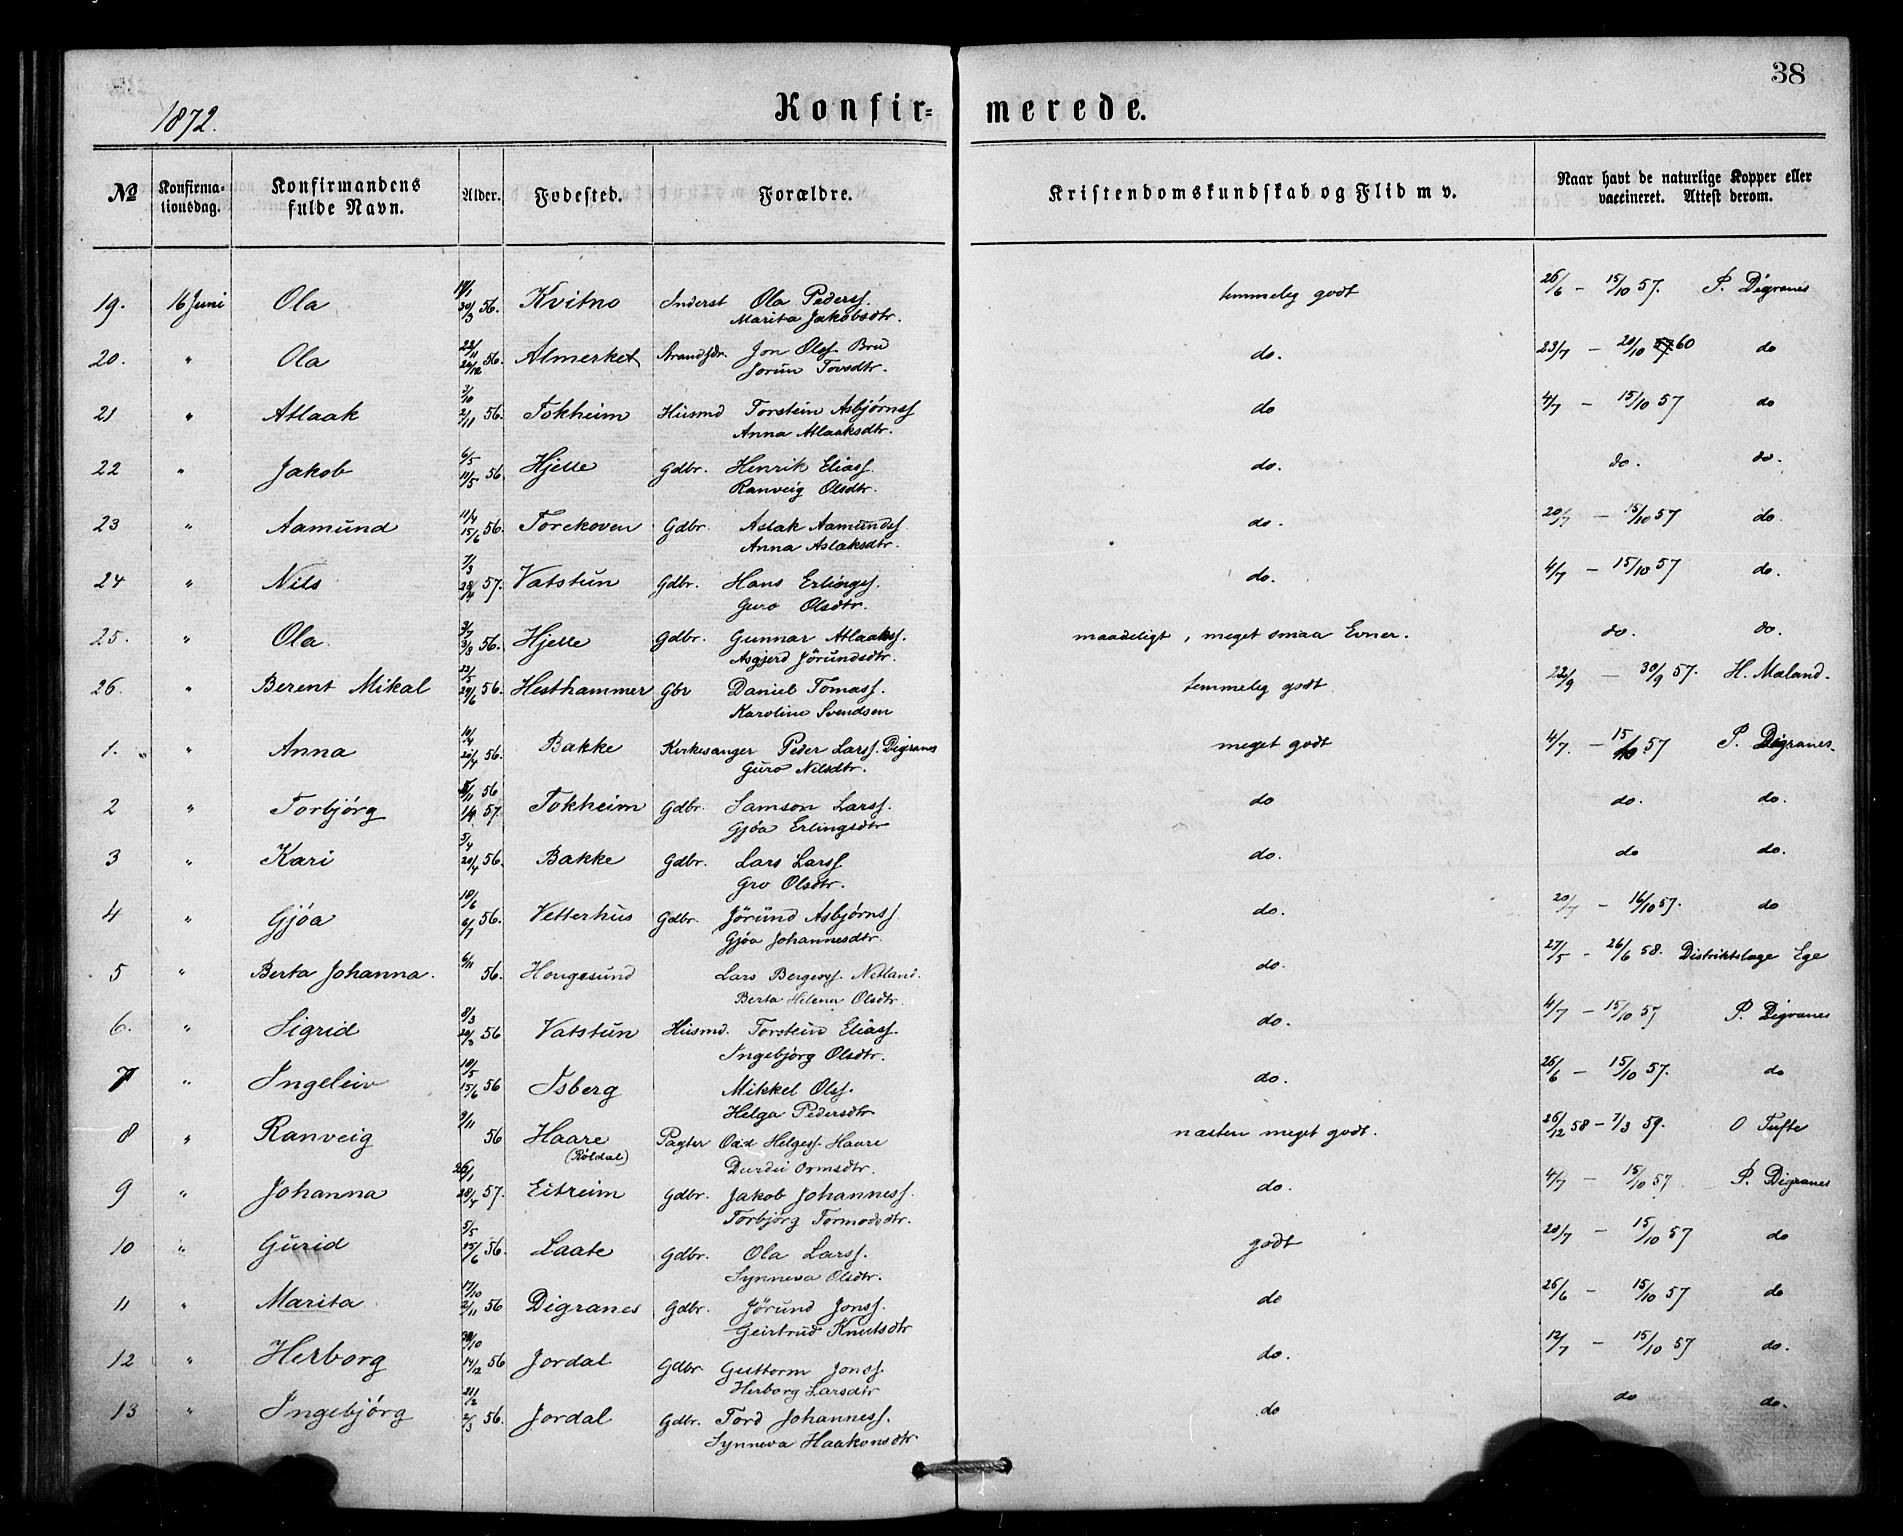 38
1872.
Konfir= merede.
No Konfirmationsdag. Konfirmandens fulde Navn. Alder. Fødested. Forældre. Kristendomskundskab og Flid m v. Naar havt de naturlige Kopper eller vaccineret. Attest derom.
19. 16 Juni Ola 30/3 56. Kvitno Inderst Ola Peders. temmelig godt 26/6 – 15/10 57. P. Digranes
Marita Jakobsdtr.
22/11
20. " Ola 20/12 56. Almerket Strands. Jon Ols. Bru do. 23/7 – 20/10 60 do
Jorun Tovsdtr.
3/10
21 " Atlaak 2/11 56. Tokheim Husmd Torstein Asbjørns. do 4/7 – 15/10 57 do
Anna Atlaaksdtr.
6/5
22 " Jakob 11/5 56. Hjelle Gdbr. Henrik Elias. do. do. do.
Ranveig Olsdtr.
11/4
23 " Aamund 15/6 56. Torekoven Gdbr. Aslak Aamunds. do. 20/7 – 15/10 57 do.
Anna Aslaksdtr.
7/3
24 " Nils 28/4 57. Vatstun Gdbr. Hans Erlings. do. 4/7 – 15/10 57 do.
Guro Olsdtr.
3/7
25. " Ola 3/8 56. Hjelle Gdbr. Gunnar Atlaaks. maadeligt, meget smaa Evner. do. do.
Asgjerd Jörundsdtr.
22/5
26. " Berent Mikal 29/6 56. Hesthammer Gbr Daniel Tomass. temmelig godt 22/9 – 30/9 57. H. Maland.
Karoline Svendsen
10/4
1. " Anna 20/4 56. Bakke Kirkesanger Peder Larss. Digranes meget godt 4/7. – 15/10 57 P. Digranes.
Guro Nilsdtr.
5/11 56
2 " Torbjörg 1/4 57. Tokheim Gdbr. Samson Larss. do do. do.
Gjøa Erlingsdtr
5/4
3 " Kari 20/4 56. Bakke Gdbr. Lars Larss. do. do do.
Gro Olsdtr.
18/6
4 " Gjøa 6/7 56. Vetterhus Gdbr. Jörund Asbjørns. do. 20/7 – 16/10 57. do
Gjøa Johannesdtr.
6/11
5 " Berta Johanna. 56. Hougesund Lars Bergess. Netland. do. 27/5 – 26/6 58. Distriktslæge Ege
Berta Helena Olsdtr.
8/3
6. " Sigrid 20/3 56 Vatstun Husmd. Torstein Elias. do. 4/7 – 15/10 57 P. Digranes
Ingebjörg Olsdtr.
18/5
7 " Ingeleiv 15/6 56 Isberg Mikkel Ols. do. 26/6 – 15/10 57. do
Helga Pedersdtr
9/11
8 " Ranveig 56 Haare Pagter Odd Helgess. Haare næsten meget godt. 26/12 58 – 7/3 59. O Tufte
(Röldal) Durdei Ormsdtr.
26/1
9 " Johanna 28/4 57. Eitreim Gdbr. Jakob Johanness. do. 4/7 – 15/10 57 P. Digranes
Torbjörg Tormodsdtr.
5/5
10 " Gurid 15/6 56. Laate Gdbr. Ola Larss. godt 20/7 – 15/10 57 do
Synneva Olsdtr.
17/10
11 " Marita 2/11 56 Digranes Gdbr. Jörund Jonss. do 26/6 – 15/10 57 do
Geirtrud Knutsdtr
30/10
12 " Herborg 14/12 56 Jordal Gdbr. Guttorm Jonss. do. 12/7 – 15/10 57 do.
Herborg Larsdtr
21/2
13 " Ingebjörg 2/3 56. Jordal Gdbr. Tord Johanness. do do do.
Synneva Haakonsdtr